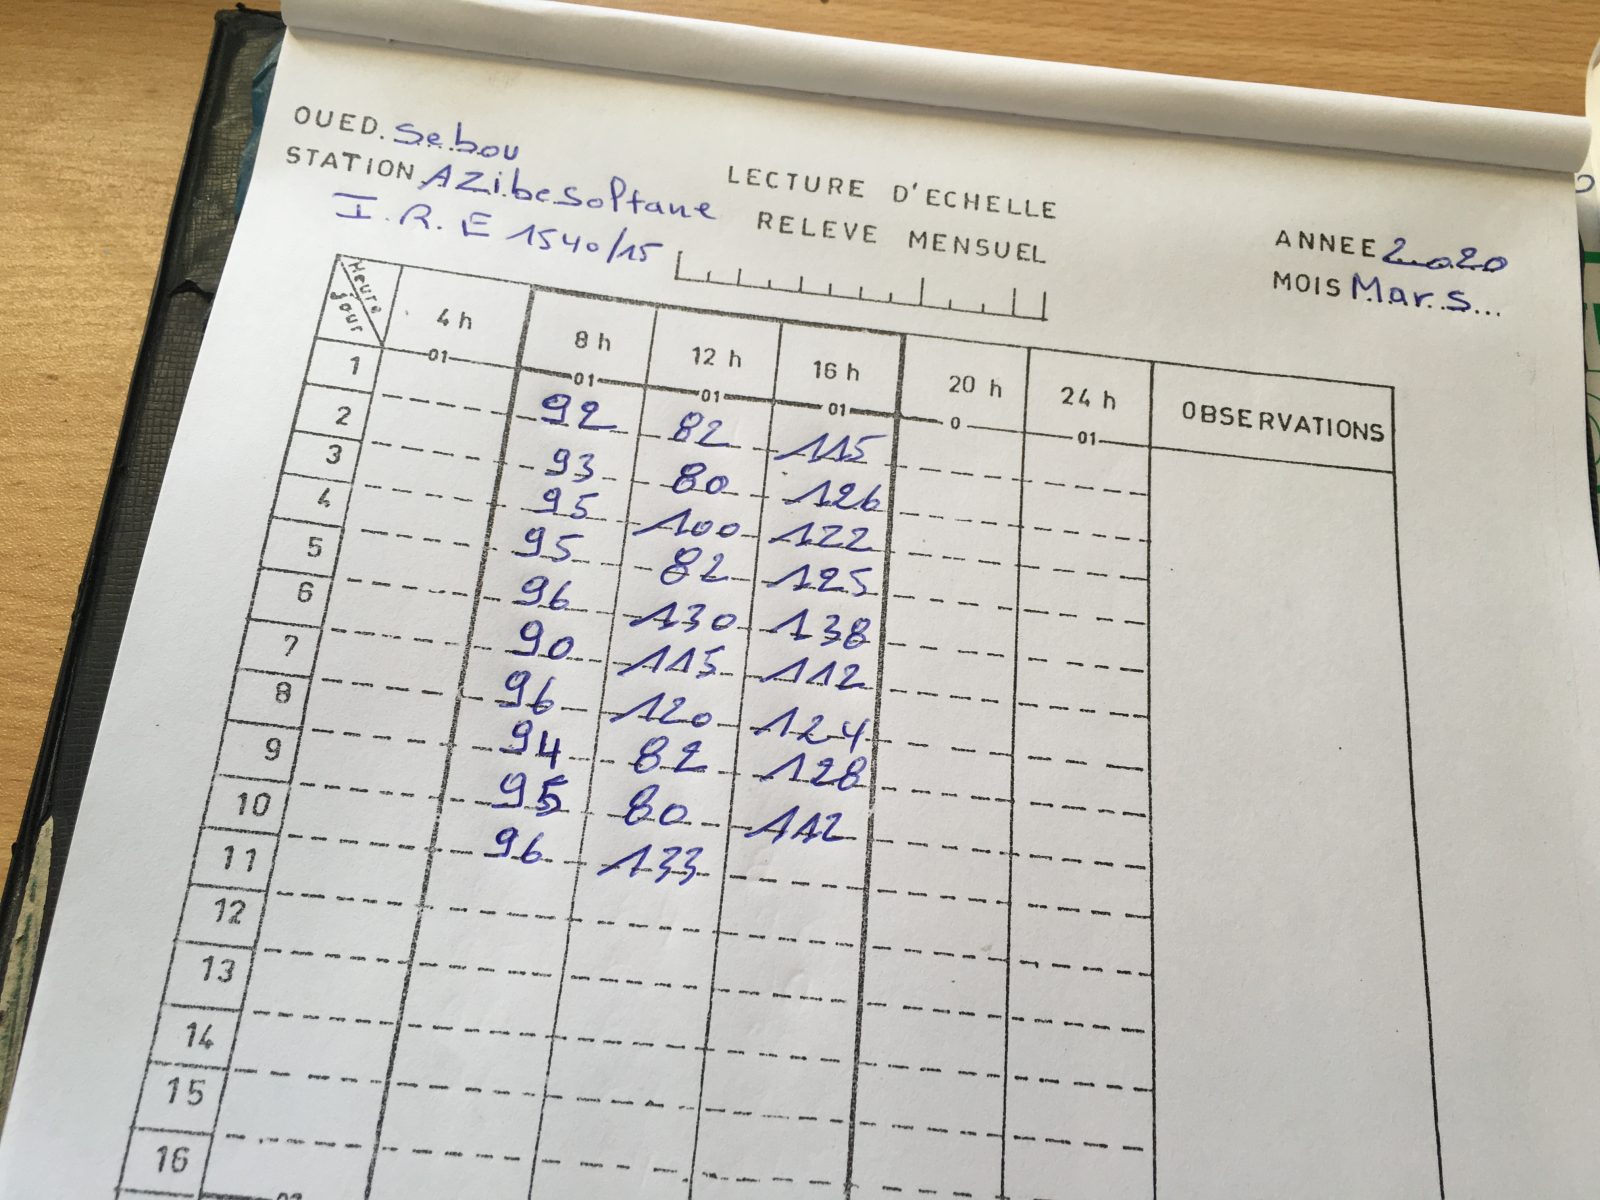 OUED. Sebou
STATION AZibe Soltane
I.R.E 1540/15
LECTURE D'ECHELLE
RELEVE MENSUEL
ANNEE 2020
MOIS Mars...
Heure
jour
4 h 8 h 12 h 16 h 20 h 24 h OBSERVATIONS
01 01 01 01 0 01
1 92 82 115
2 93 80 126
3 95 100 122
4 95 82 125
5 96 130 138
6 90 115 112
7 96 120 124
8 94 82 128
9 95 80 112
10 96 133
11
12
13
14
15
16